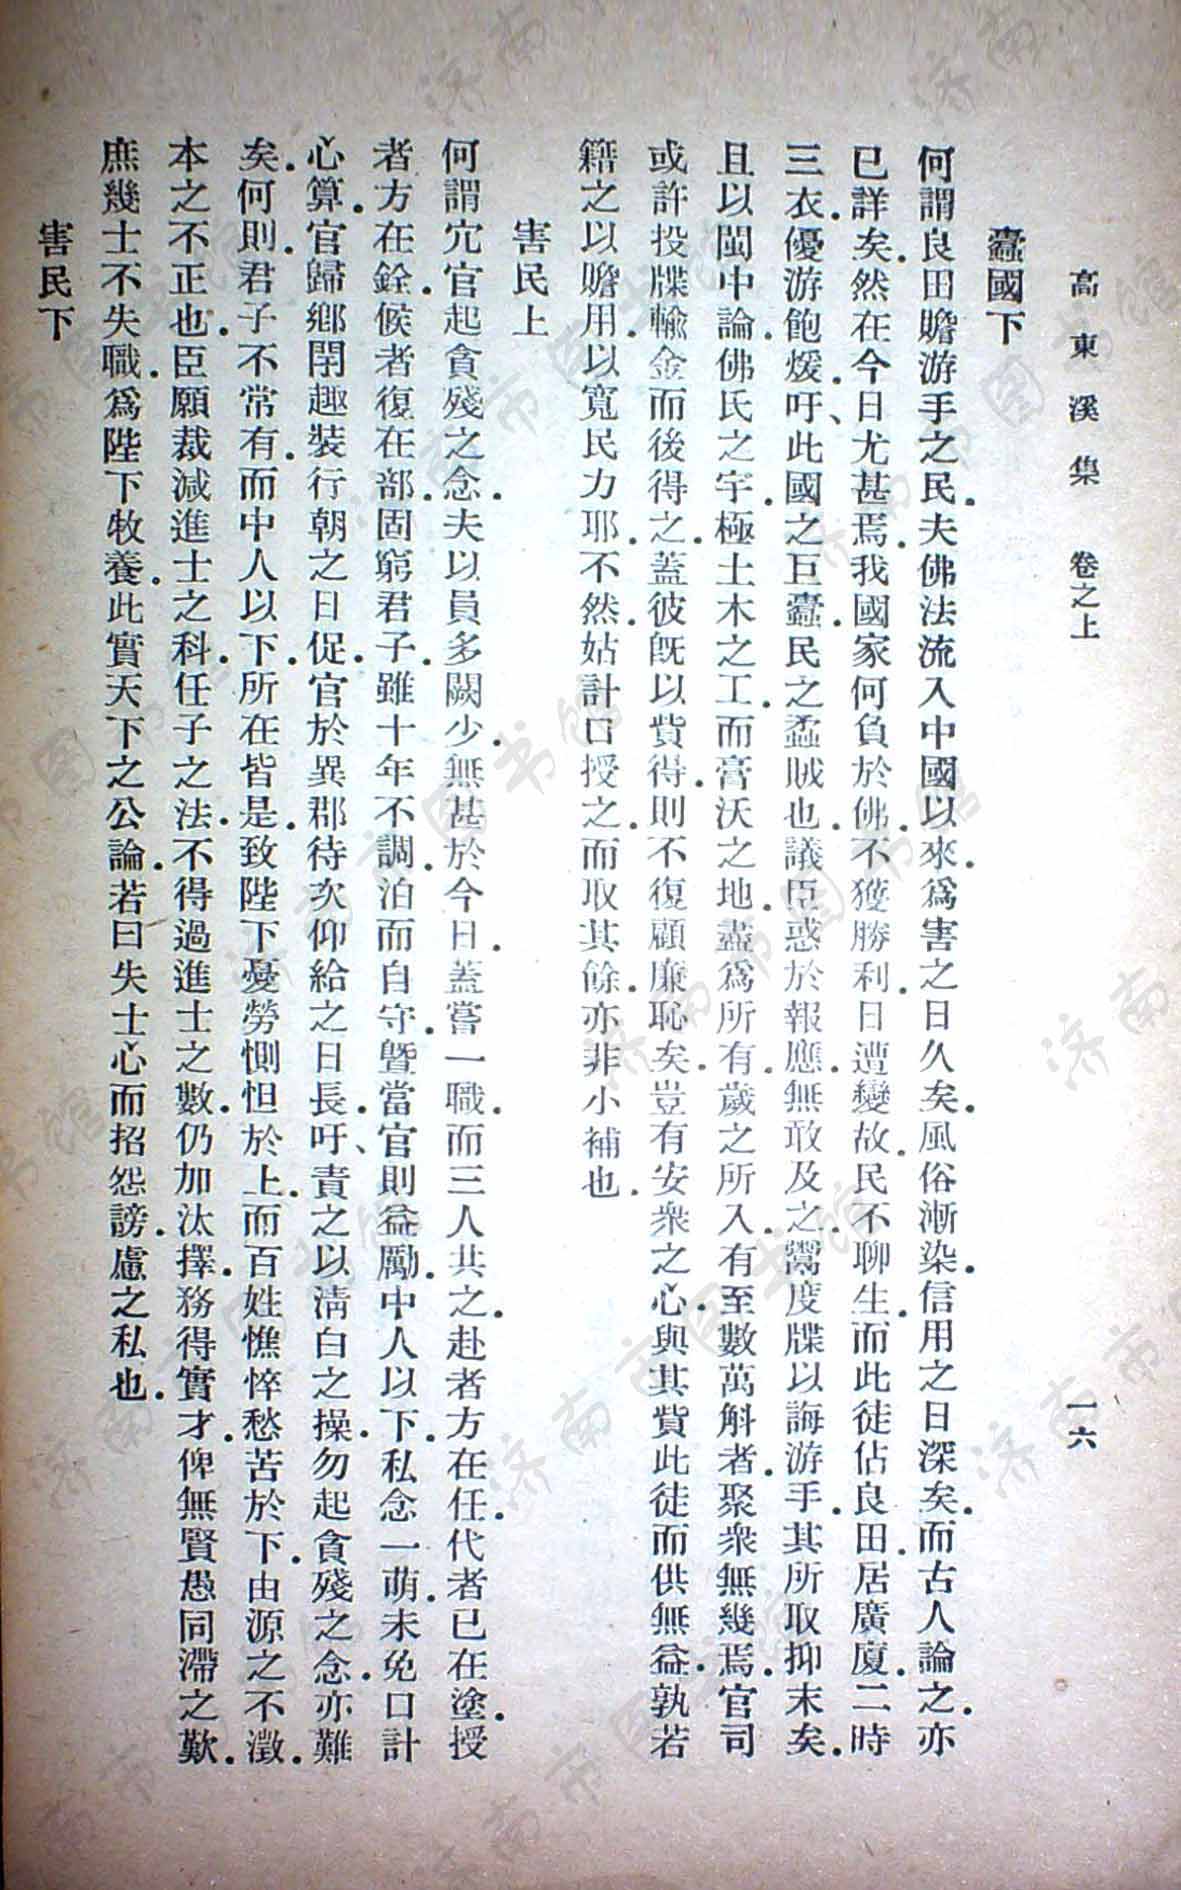 高東溪集 卷之上 一六
蠧國下
何謂良田贍游手之民.夫佛法流入中國以來.爲害之日久矣.風俗漸染.信用之日深矣.而古人論之.亦
已詳矣.然在今日尤甚焉.我國家何負於佛.不獲勝利.日遭變故.民不聊生.而此徒佔良田.居廣廈.二時
三衣.優游飽煖.吁、此國之巨蠧.民之蟊賊也.議臣惑於報應.無敢及之.鬻度牒以誨游手.其所取抑末矣.
且以閩中論.佛氏之宇.極土木之工.而膏沃之地.盡爲所有.歲之所入.有至數萬斛者.聚衆無幾焉.官司
或許投牒輸金而後得之.蓋彼旣以貲得.則不復顧廉恥矣.豈有安衆之心.與其貲此徒而供無益.孰若
籍之以贍用.以寬民力耶.不然.姑計口授之.而取其餘.亦非小補也.
害民上
何謂宂官起貪殘之念.夫以員多闕少.無甚於今日.蓋嘗一職.而三人共之.赴者方在任.代者已在塗.授
者方在銓.候者復在部.固窮君子.雖十年不調.泊而自守.曁當官則益勵.中人以下.私念一萌.未免口計
心算.官歸鄉閈.趣裝行朝之日促.官於異郡.待次仰給之日長.吁、責之以淸白之操.勿起貪殘之念.亦難
矣.何則.君子不常有.而中人以下.所在皆是.致陛下憂勞惻怛於上.而百姓憔悴愁苦於下.由源之不澂.
本之不正也.臣願裁減進士之科.任子之法.不得過進士之數.仍加汰擇.務得實才.俾無賢愚同滯之歎.
庶幾士不失職.爲陛下牧養.此實天下之公論.若曰失士心而招怨謗.慮之私也.
害民下